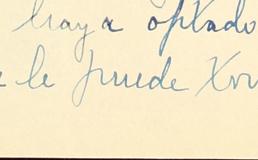 haya optado
le puede